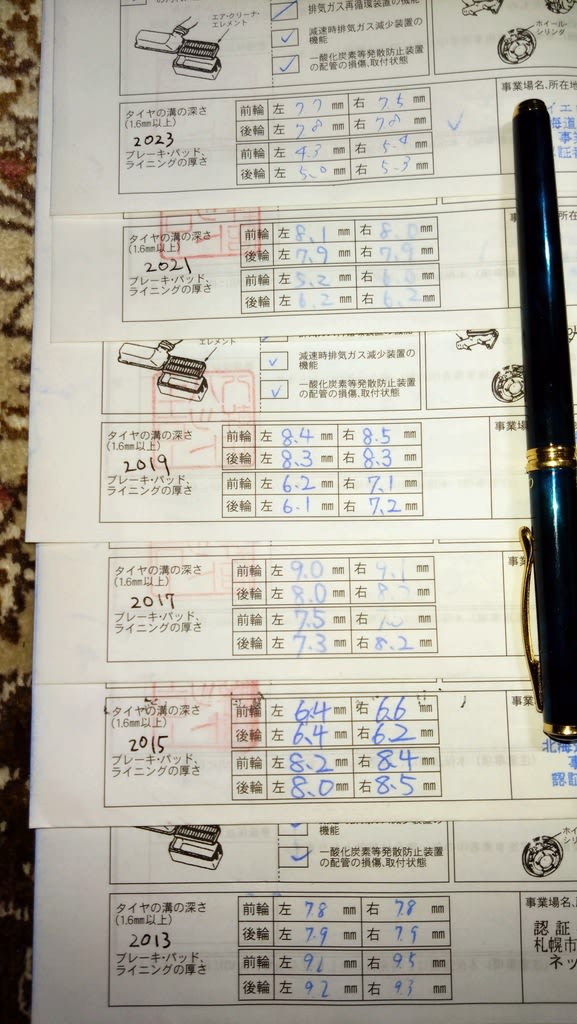 エア・クリーナ・
エレメント
排気ガス再循環装置の機能
減速時排気ガス減少装置の
機能
一酸化炭素等発散防止装置
の配管の損傷、取付状態
ホイール・
シリンダ
タイヤの溝の深さ
(1.6mm以上)
2023
ブレーキ・パッド、
ライニングの厚さ
前輪 左 7.7 mm 右 7.5 mm
後輪 左 7.8 mm 右 7.8 mm
前輪 左 4.3 mm 右 5.4 mm
後輪 左 5.0 mm 右 5.3 mm
事業場名、所在地
タイヤの溝の深さ
(1.6mm以上)
2021
ブレーキ・パッド、
ライニングの厚さ
前輪 左 8.1 mm 右 8.0 mm
後輪 左 7.9 mm 右 7.9 mm
前輪 左 5.2 mm 右 6.0 mm
後輪 左 6.2 mm 右 6.2 mm
エレメント
減速時排気ガス減少装置の
機能
一酸化炭素等発散防止装置
の配管の損傷、取付状態
タイヤの溝の深さ
(1.6mm以上)
2019
ブレーキ・パッド、
ライニングの厚さ
前輪 左 8.4 mm 右 8.5 mm
後輪 左 8.3 mm 右 8.3 mm
前輪 左 6.2 mm 右 7.1 mm
後輪 左 6.1 mm 右 7.2 mm
事業
タイヤの溝の深さ
(1.6mm以上)
2017
ブレーキ・パッド、
ライニングの厚さ
前輪 左 9.0 mm 右 9.1 mm
後輪 左 8.0 mm 右 mm
前輪 左 7.5 mm 右 mm
後輪 左 7.3 mm 右 8.2 mm
事業
タイヤの溝の深さ
(1.6mm以上)
2015
ブレーキ・パッド、
ライニングの厚さ
前輪 左 6.4 mm 右 6.6 mm
後輪 左 6.4 mm 右 6.2 mm
前輪 左 8.2 mm 右 8.4 mm
後輪 左 8.0 mm 右 8.5 mm
事業
北海道
事
認証
機能
一酸化炭素等発散防止装置
の配管の損傷、取付状態
ホイ
シリ
タイヤの溝の深さ
(1.6mm以上)
2013
ブレーキ・パッド、
ライニングの厚さ
前輪 左 7.8 mm 右 7.8 mm
後輪 左 7.9 mm 右 7.9 mm
前輪 左 9.1 mm 右 9.5 mm
後輪 左 9.2 mm 右 9.3 mm
事業場名、
認証
札幌市
ネッ